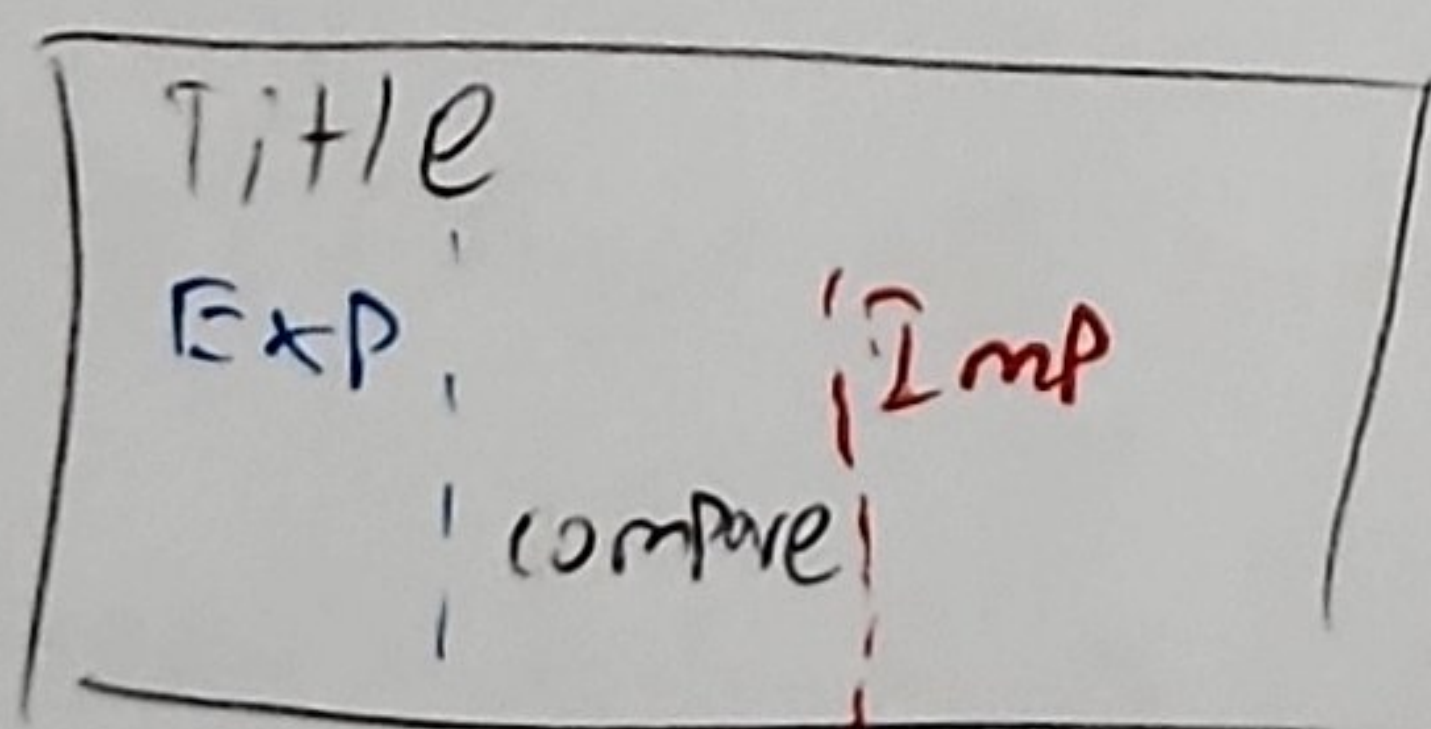 Title
Exp
Imp
compare